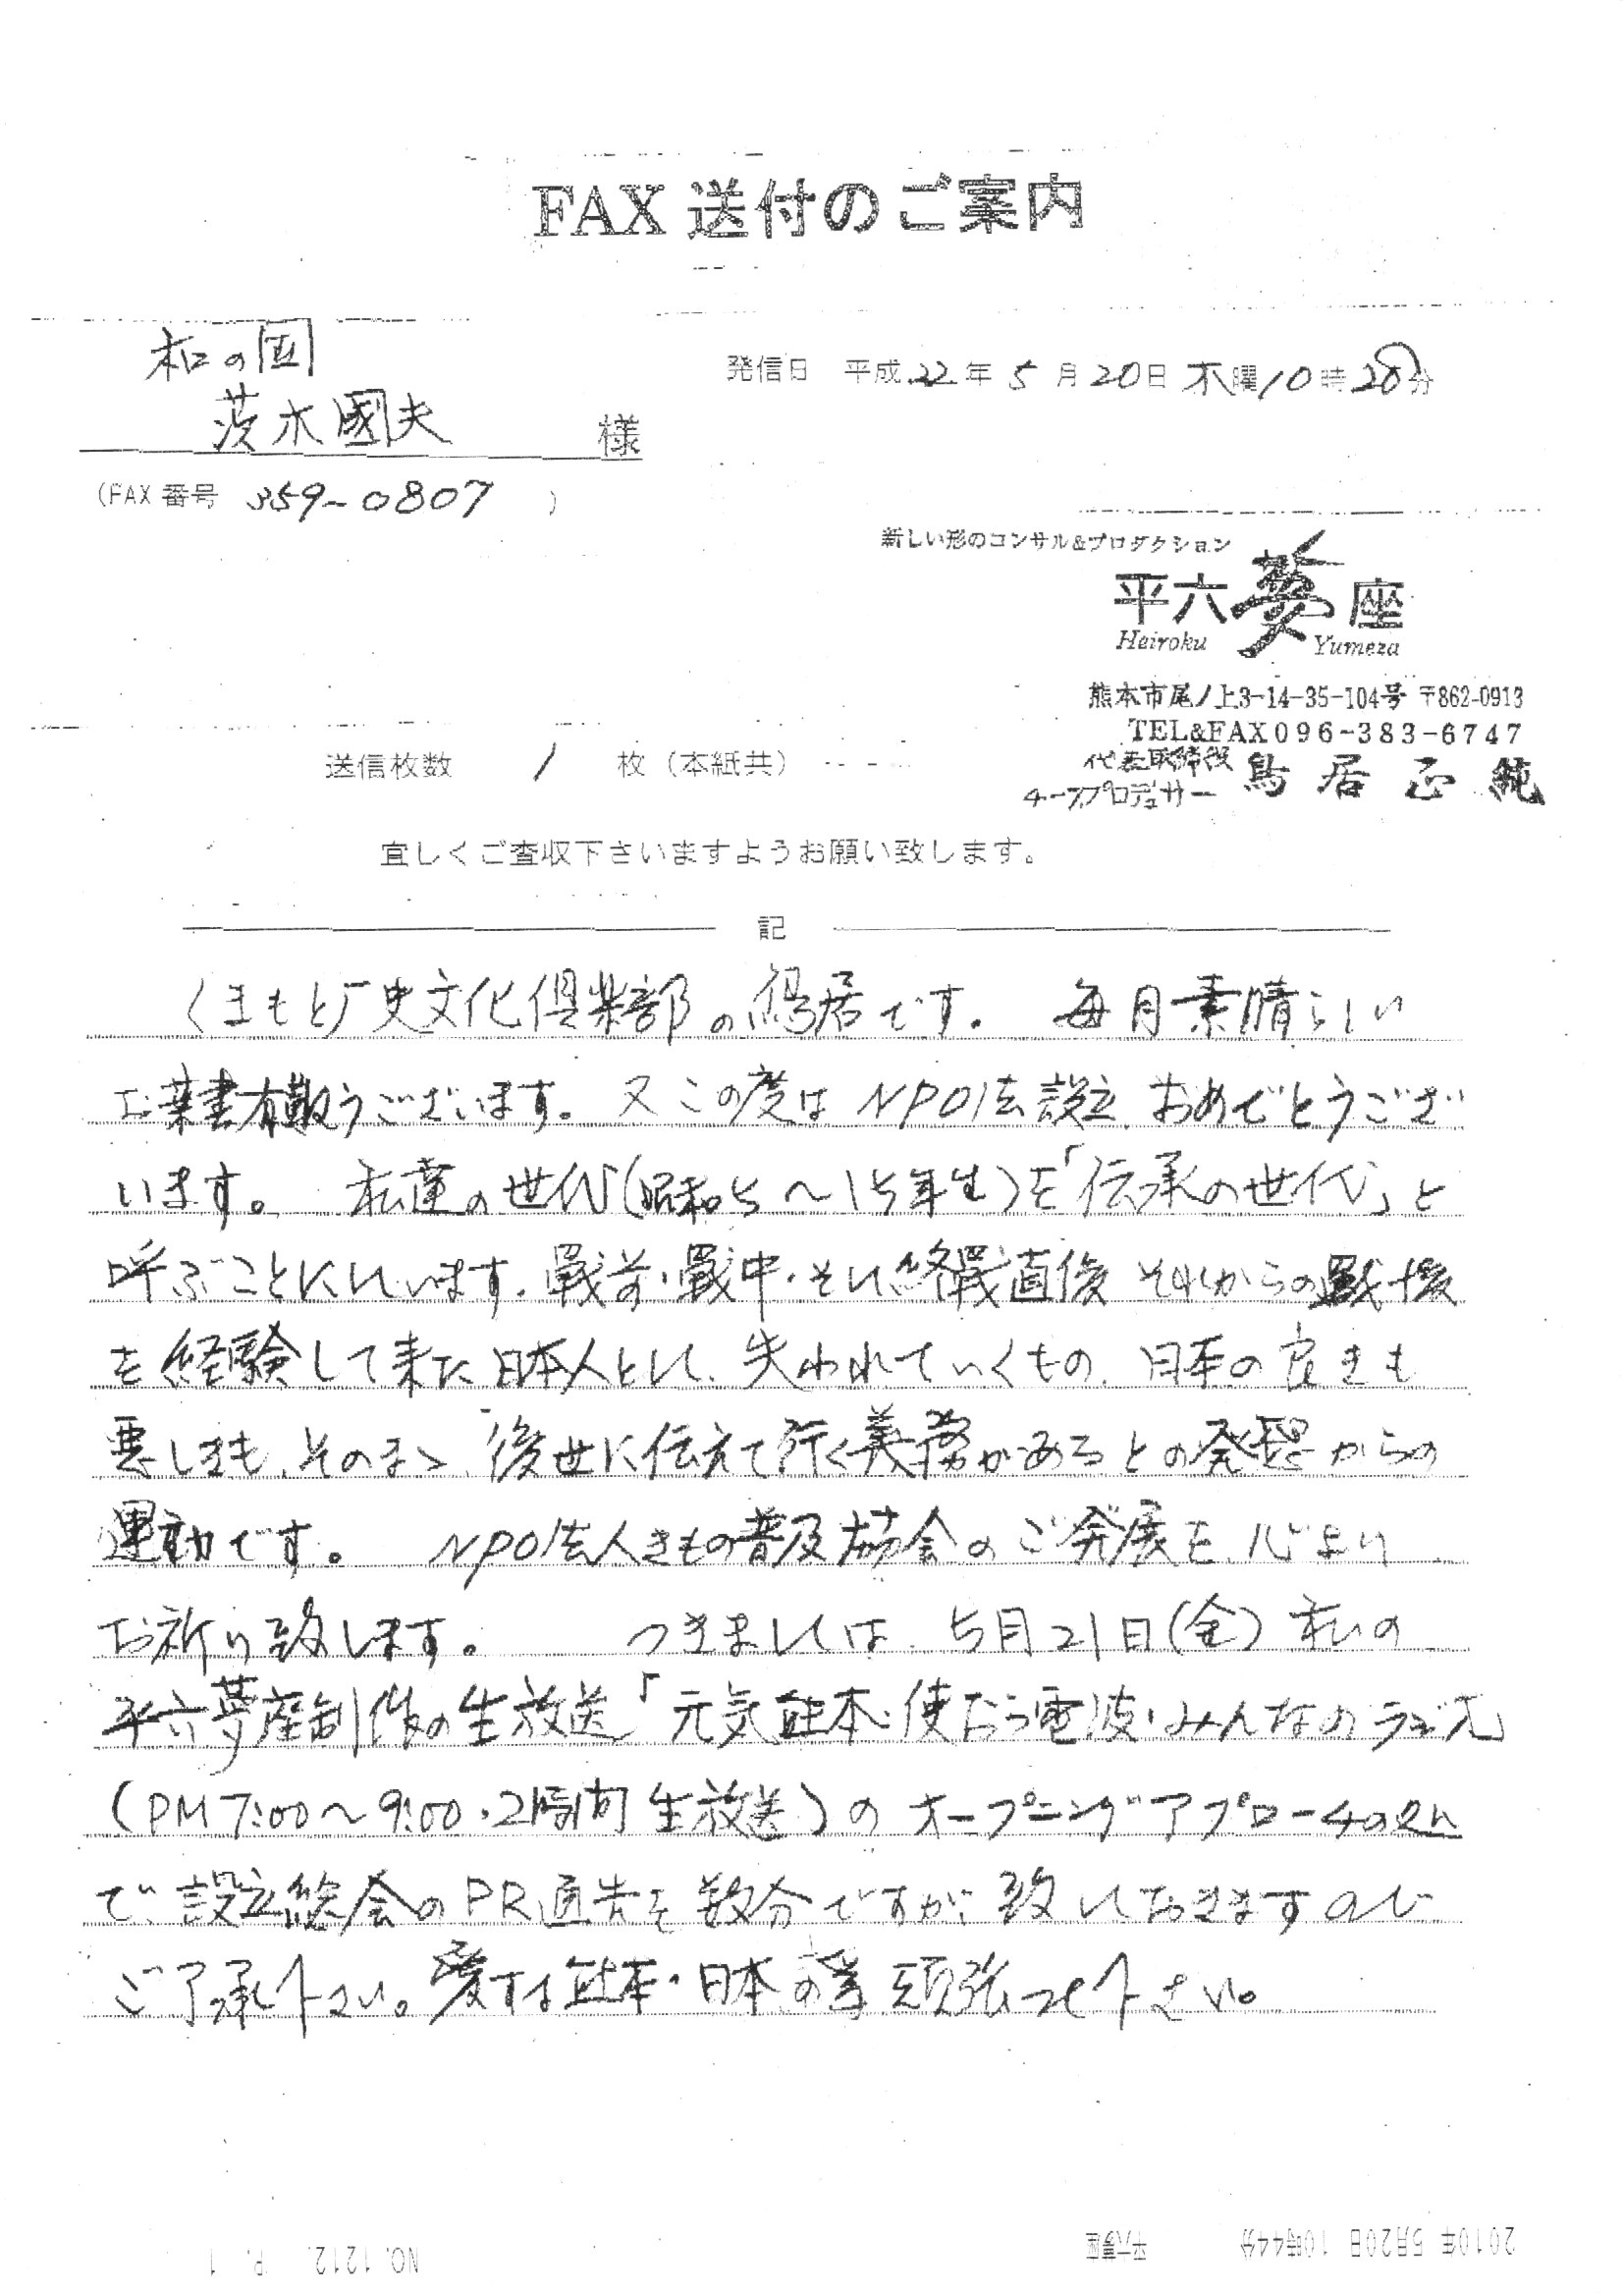 FAX 送付のご案内
和の国
発信日 平成 22年 5月20日 木曜10時20分
茨木國夫 様
(FAX 番号 359-0807 )
新しい形のコンサル&プロダクション
平六夢座
Heiroku Yumeza
熊本市尾ノ上3-14-35-104号 〒862-0913
TEL&FAX096-383-6747
送信枚数 1 枚(本紙共)
代表取締役
チーフプロデュサー 鳥居正純
宜しくご査収下さいますようお願い致します。
記
くまもと歴史文化倶楽部の鳥居です。 毎月素晴らしい
お葉書有難うございます。又この度はNPO法設立おめでとうござ
います。 私達の世代(昭和5〜15年生)を「伝承の世代」と
呼ぶことにしています。戦前・戦中・そして終戦直後それからの戦後
を経験して来た日本人として、失われていくもの、日本の良きも
悪しきも、そのまゝ後世に伝えて行く義務があるとの発想からの
運動です。 NPO法人きもの普及協会のご発展を心より
お祈り致します。 つきましては、5月21日(金)私の
平六夢座制作の生放送「元気熊本・使おう電波・みんなのラジオ」
(PM7:00〜9:00・2時間生放送)のオープニングアプローチ
で設立総会のPR通告を数分ですが、致しておきますので
ご了承下さい。愛する熊本・日本の為頑張って下さい。
2010年 5月20日 10時44分 平六夢座 NO.1212 P. 1